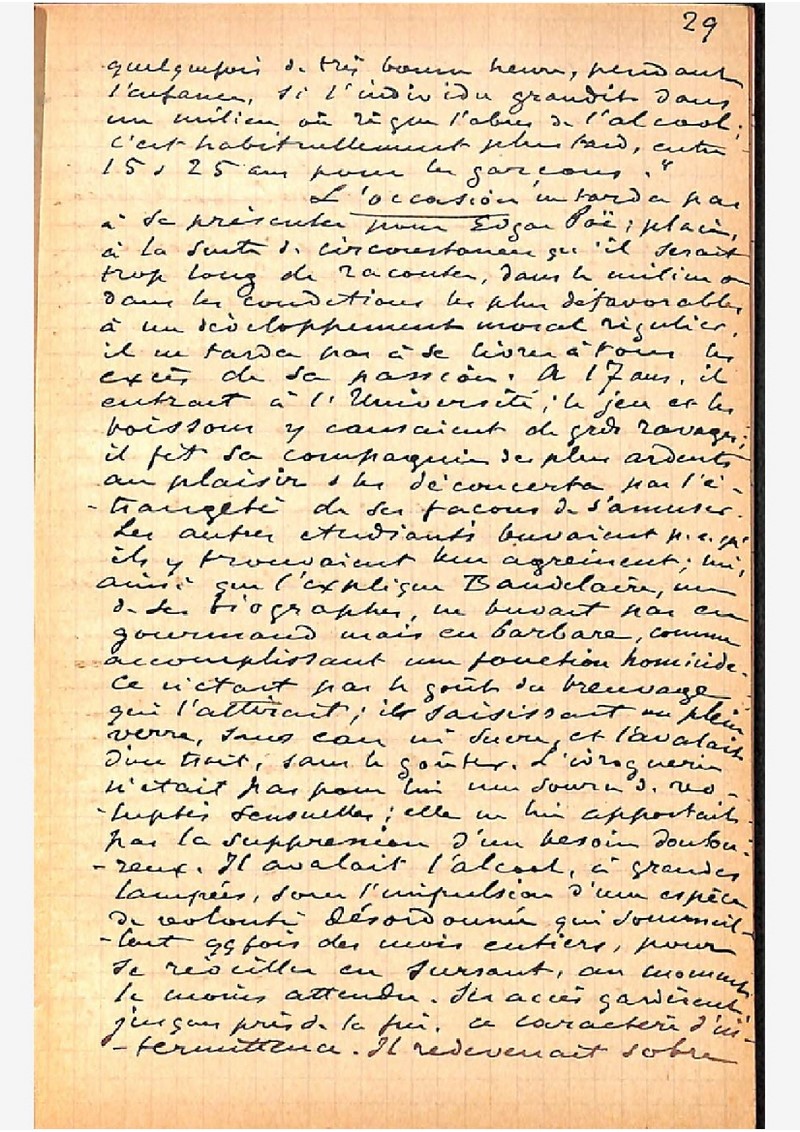 29
quelquefois de très bonne heure, pendant
l'enfance, si l'individu grandit dans
un milieu où règne l'abus de l'alcool ;
c'est habituellement plus tard, entre
15 & 25 ans pour les garçons."
L'occasion ne tarda pas
à se présenter pour Edgar Poë ; placé,
à la suite de circonstances qu'il serait
trop long de raconter, dans le milieu &
dans les conditions les plus défavorables
à un développement moral régulier,
il ne tarda pas à se livrer à tous les
excès de sa passion. A 17 ans, il
entrait à l'Université ; le jeu et les
boissons y causaient de gds ravages ;
il fit sa compagnie des plus ardents
au plaisir & les déconcerta par l'é-
-trangeté de ses façons de s'amuser.
Les autres étudiants buvaient p.c.qu'
ils y trouvaient leur agrément ; lui,
ainsi que l'explique Baudelaire, un
de ses biographes, ne buvait pas en
gourmand mais en barbare, comme
accomplissant une fonction homicide.
Ce n'était pas le goût du breuvage
qui l'attirait ; il saisissait un plein
verre, sans eau ni sucre, et l'avalait
d'un trait, sans le goûter. L'ivrognerie
n'était pas pour lui une source de vo-
-luptés sensuelles ; elle ne lui apportait
pas la suppression d'un besoin doulou-
-reux. Il avalait l'alcool, à grandes
lampées, sous l'impulsion d'une espèce
de volonté désordonnée qui sommeil-
-lait qqfois des mois entiers, pour
se réveiller en sursaut, au moment
le moins attendu. Ses accès gardèrent
jusque près de la fin, ce caractère d'in-
-termittence. Il redevenait sobre